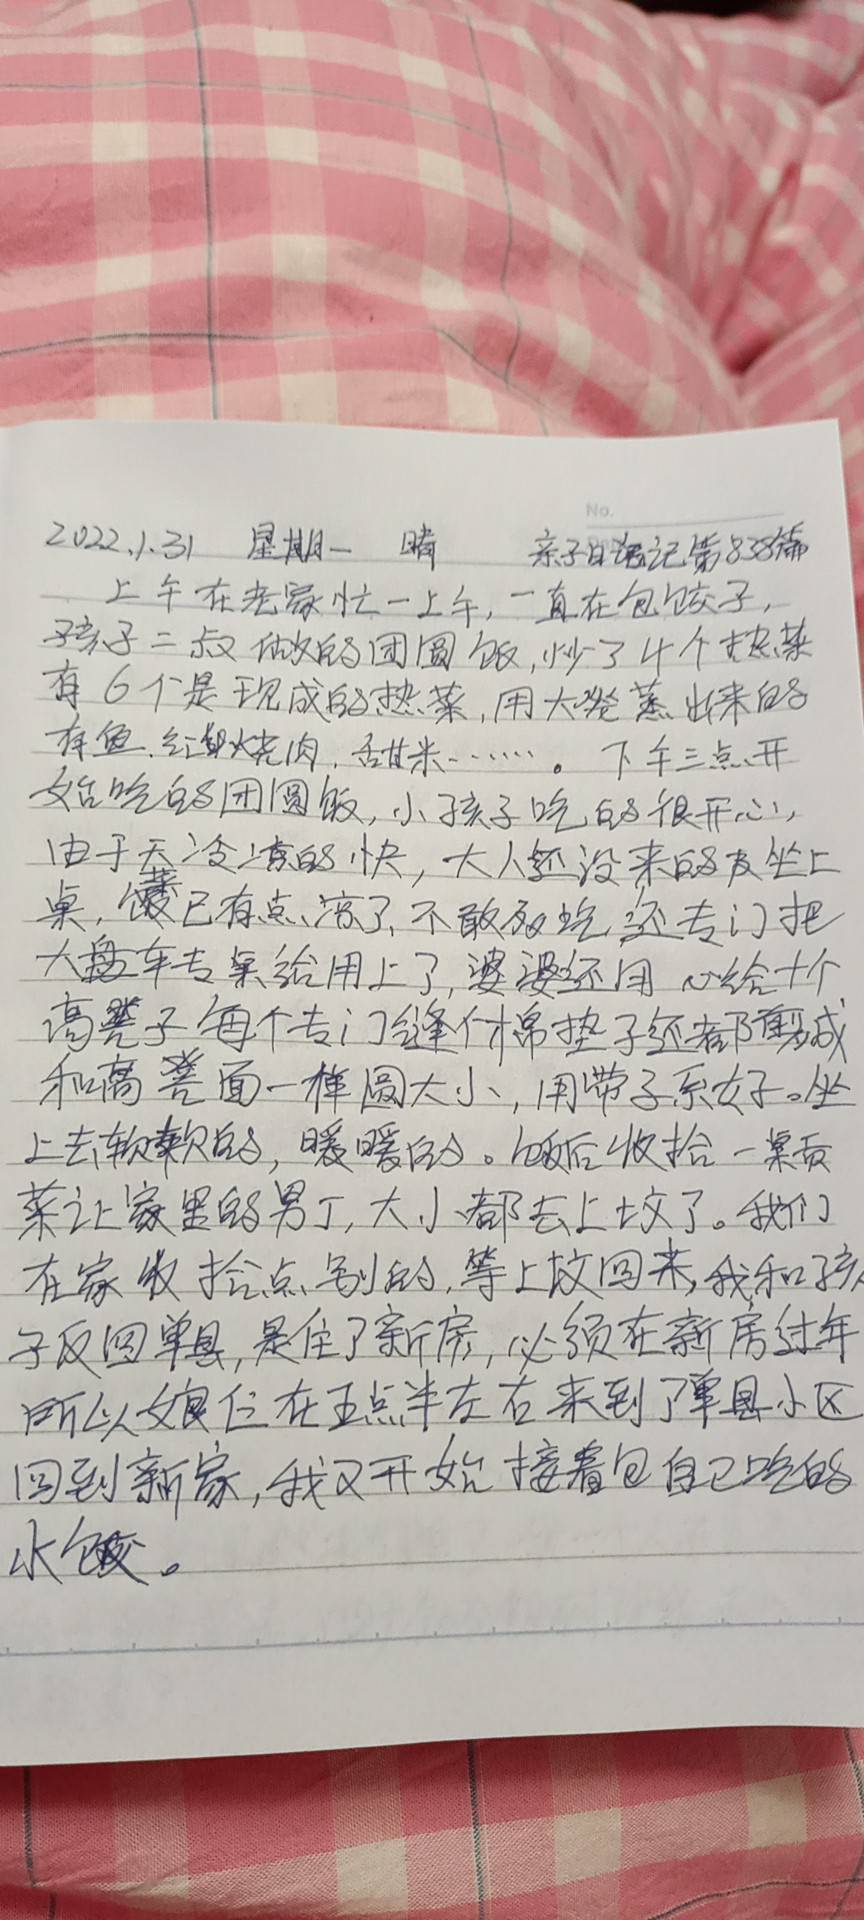 No.
2022.1.31 星期一 晴 亲子日记第838篇
上午在老家忙一上午,一直在包饺子,
孩子二叔做的团圆饭,炒了4个热菜
有6个是现成的热菜,用大 蒸出来的
有鱼、红烧肉,甜米……。下午三点开
始吃的团圆饭,小孩子吃的很开心,
由于天冷凉的快,大人还没来的及坐上
桌,菜已有点凉了,不敢 吃还专门把
大盘车专桌给用上了,婆婆还用心给十个
高凳子每个专门缝个棉垫子还都剪成
和高凳面一样圆大小,用带子系好。坐
上去软软的,暖暖的。饭后收拾一桌贡
菜让家里的男丁,大小都去上坟了。我们
在家收拾点别的,等上坟回来,我和孩
子反回单县,是住了新房,必须在新房过年
所以娘仨在五点半左右来到了单县小区
回到新家,我又开始接着包自己吃的
水饺。